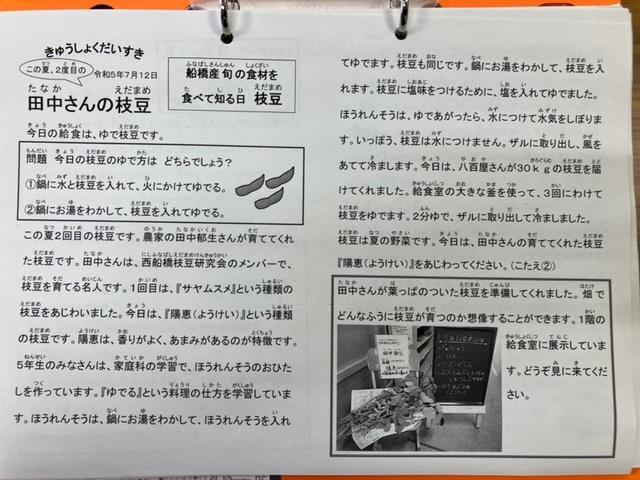 きゅうしょくだいすき
この夏、2度目の
令和5年7月12日
田中さんの枝豆
船橋産旬の食材を
食べて知る日 枝豆
今日の給食は、ゆで枝豆です。
問題 今日の枝豆のゆで方は どちらでしょう?
①鍋に水と枝豆を入れて、火にかけてゆでる。
②鍋にお湯をわかして、枝豆を入れてゆでる。
この夏2回目の枝豆です。農家の田中郁生さんが育ててくれ
た枝豆です。田中さんは、西船橋枝豆研究会のメンバーで、
枝豆を育てる名人です。1回目は、『サヤムスメ』という種類の
枝豆をあじわいました。今日は、『陽恵(ようけい)』という種類
の枝豆です。陽恵は、香りがよく、あまみがあるのが特徴です。
5年生のみなさんは、家庭科の学習で、ほうれんそうのおひた
しを作っています。『ゆでる』という料理の仕方を学習していま
す。ほうれんそうは、鍋にお湯をわかして、ほうれんそうを入れ
てゆでます。枝豆も同じです。鍋にお湯をわかして、枝豆を入
れます。枝豆に塩味をつけるために、塩を入れてゆでました。
ほうれんそうは、ゆであがったら、水につけて水気をしぼりま
す。いっぽう、枝豆は水につけません。ザルに取り出し、風を
あてて冷まします。今日は、八百屋さんが30kgの枝豆を届
けてくれました。給食室の大きな釜を使って、3回にわけて
枝豆をゆでます。2分ゆで、ザルに取り出して冷ましました。
枝豆は夏の野菜です。今日は、田中さんの育ててくれた枝豆
『陽恵(ようけい)』をあじわってください。(こたえ②)
田中さんが葉っぱのついた枝豆を準備してくれました。畑で
どんなふうに枝豆が育つのか想像することができます。1階の
給食室に展示していま
す。どうぞ見に来てくだ
さい。